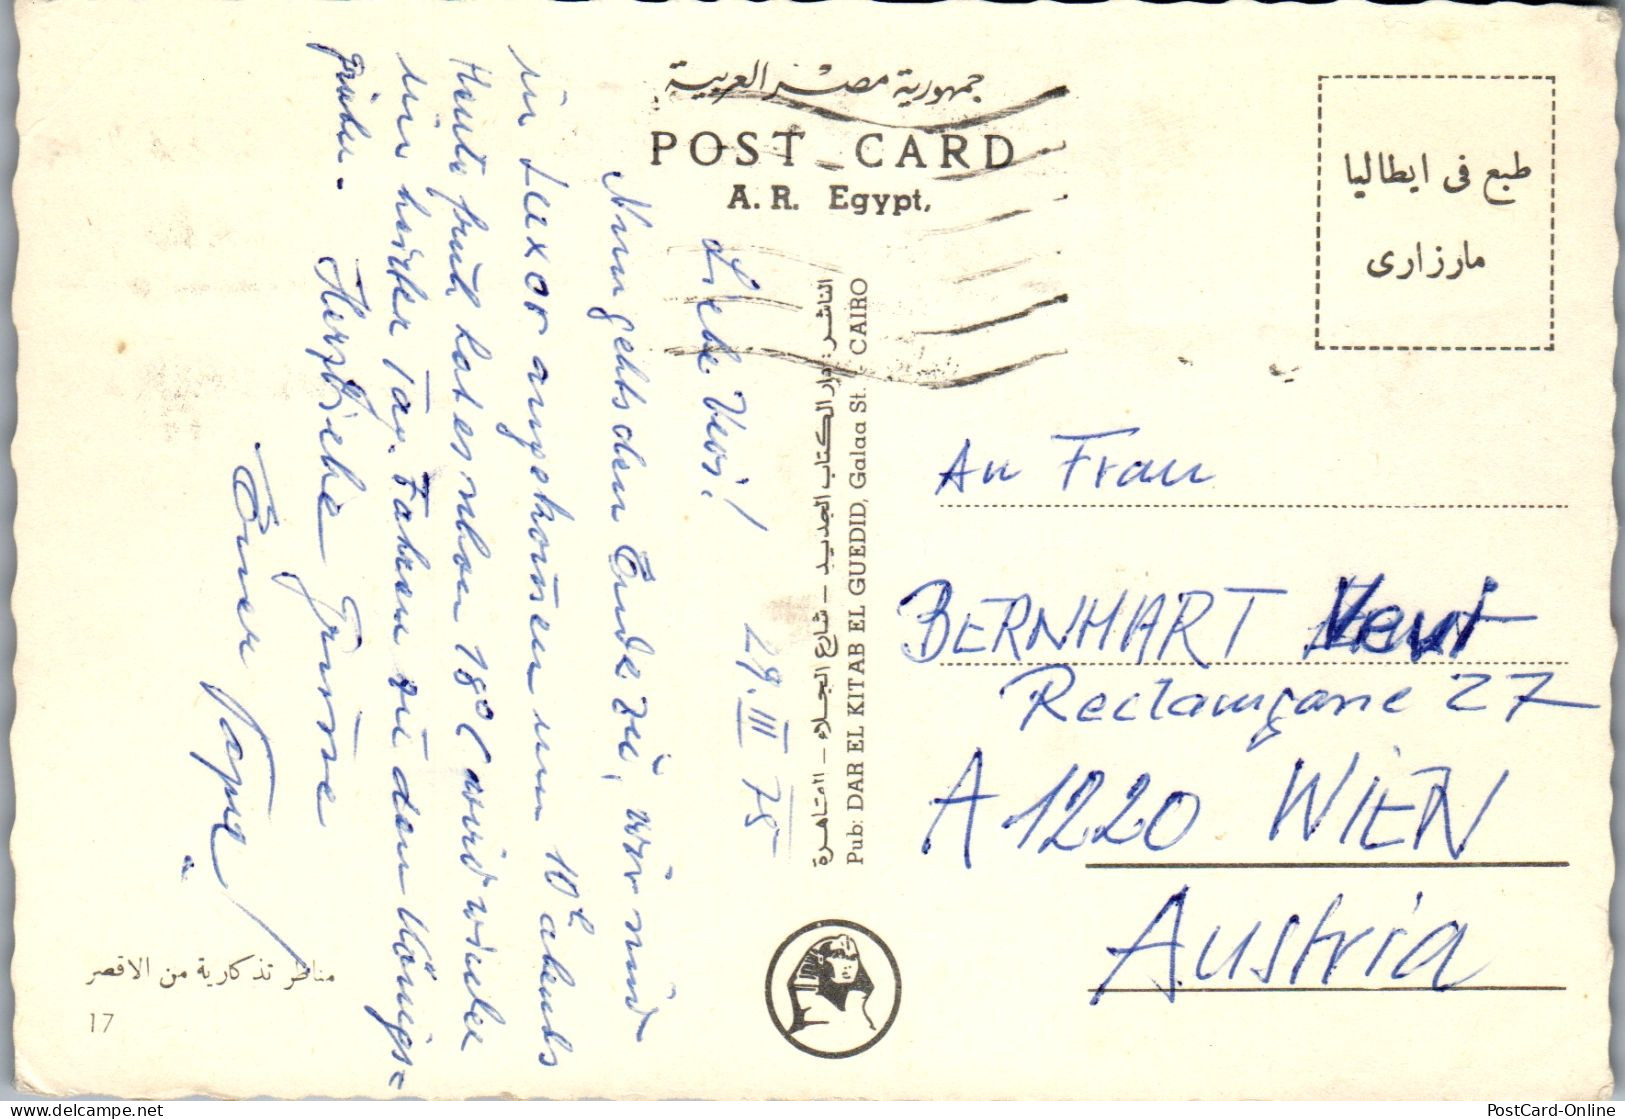 جمهورية مصر العربية
POST CARD
A. R. Egypt,
طبع في ايطاليا
مارزارى
Liebe Vevi!
29. III 75
Nun gehts dem Ende zu, wir sind
in Luxor angekommen um 10h abends
Heute früh hat es schon 18°C wird wieder
ein heißer Tag. Fahren zu den Königs=
gräber.
Herzliche Grüsse
Euer Papa
الناشر: دار الكتاب الجديد - شارع الجلاء - القاهرة
Pub: DAR EL KITAB EL GUEDID, Galaa St. - CAIRO
An Frau
BERNHART
27
A 1220 WIEN
Austria
مناظر تذكارية من الاقصر
17
PostCard-Online